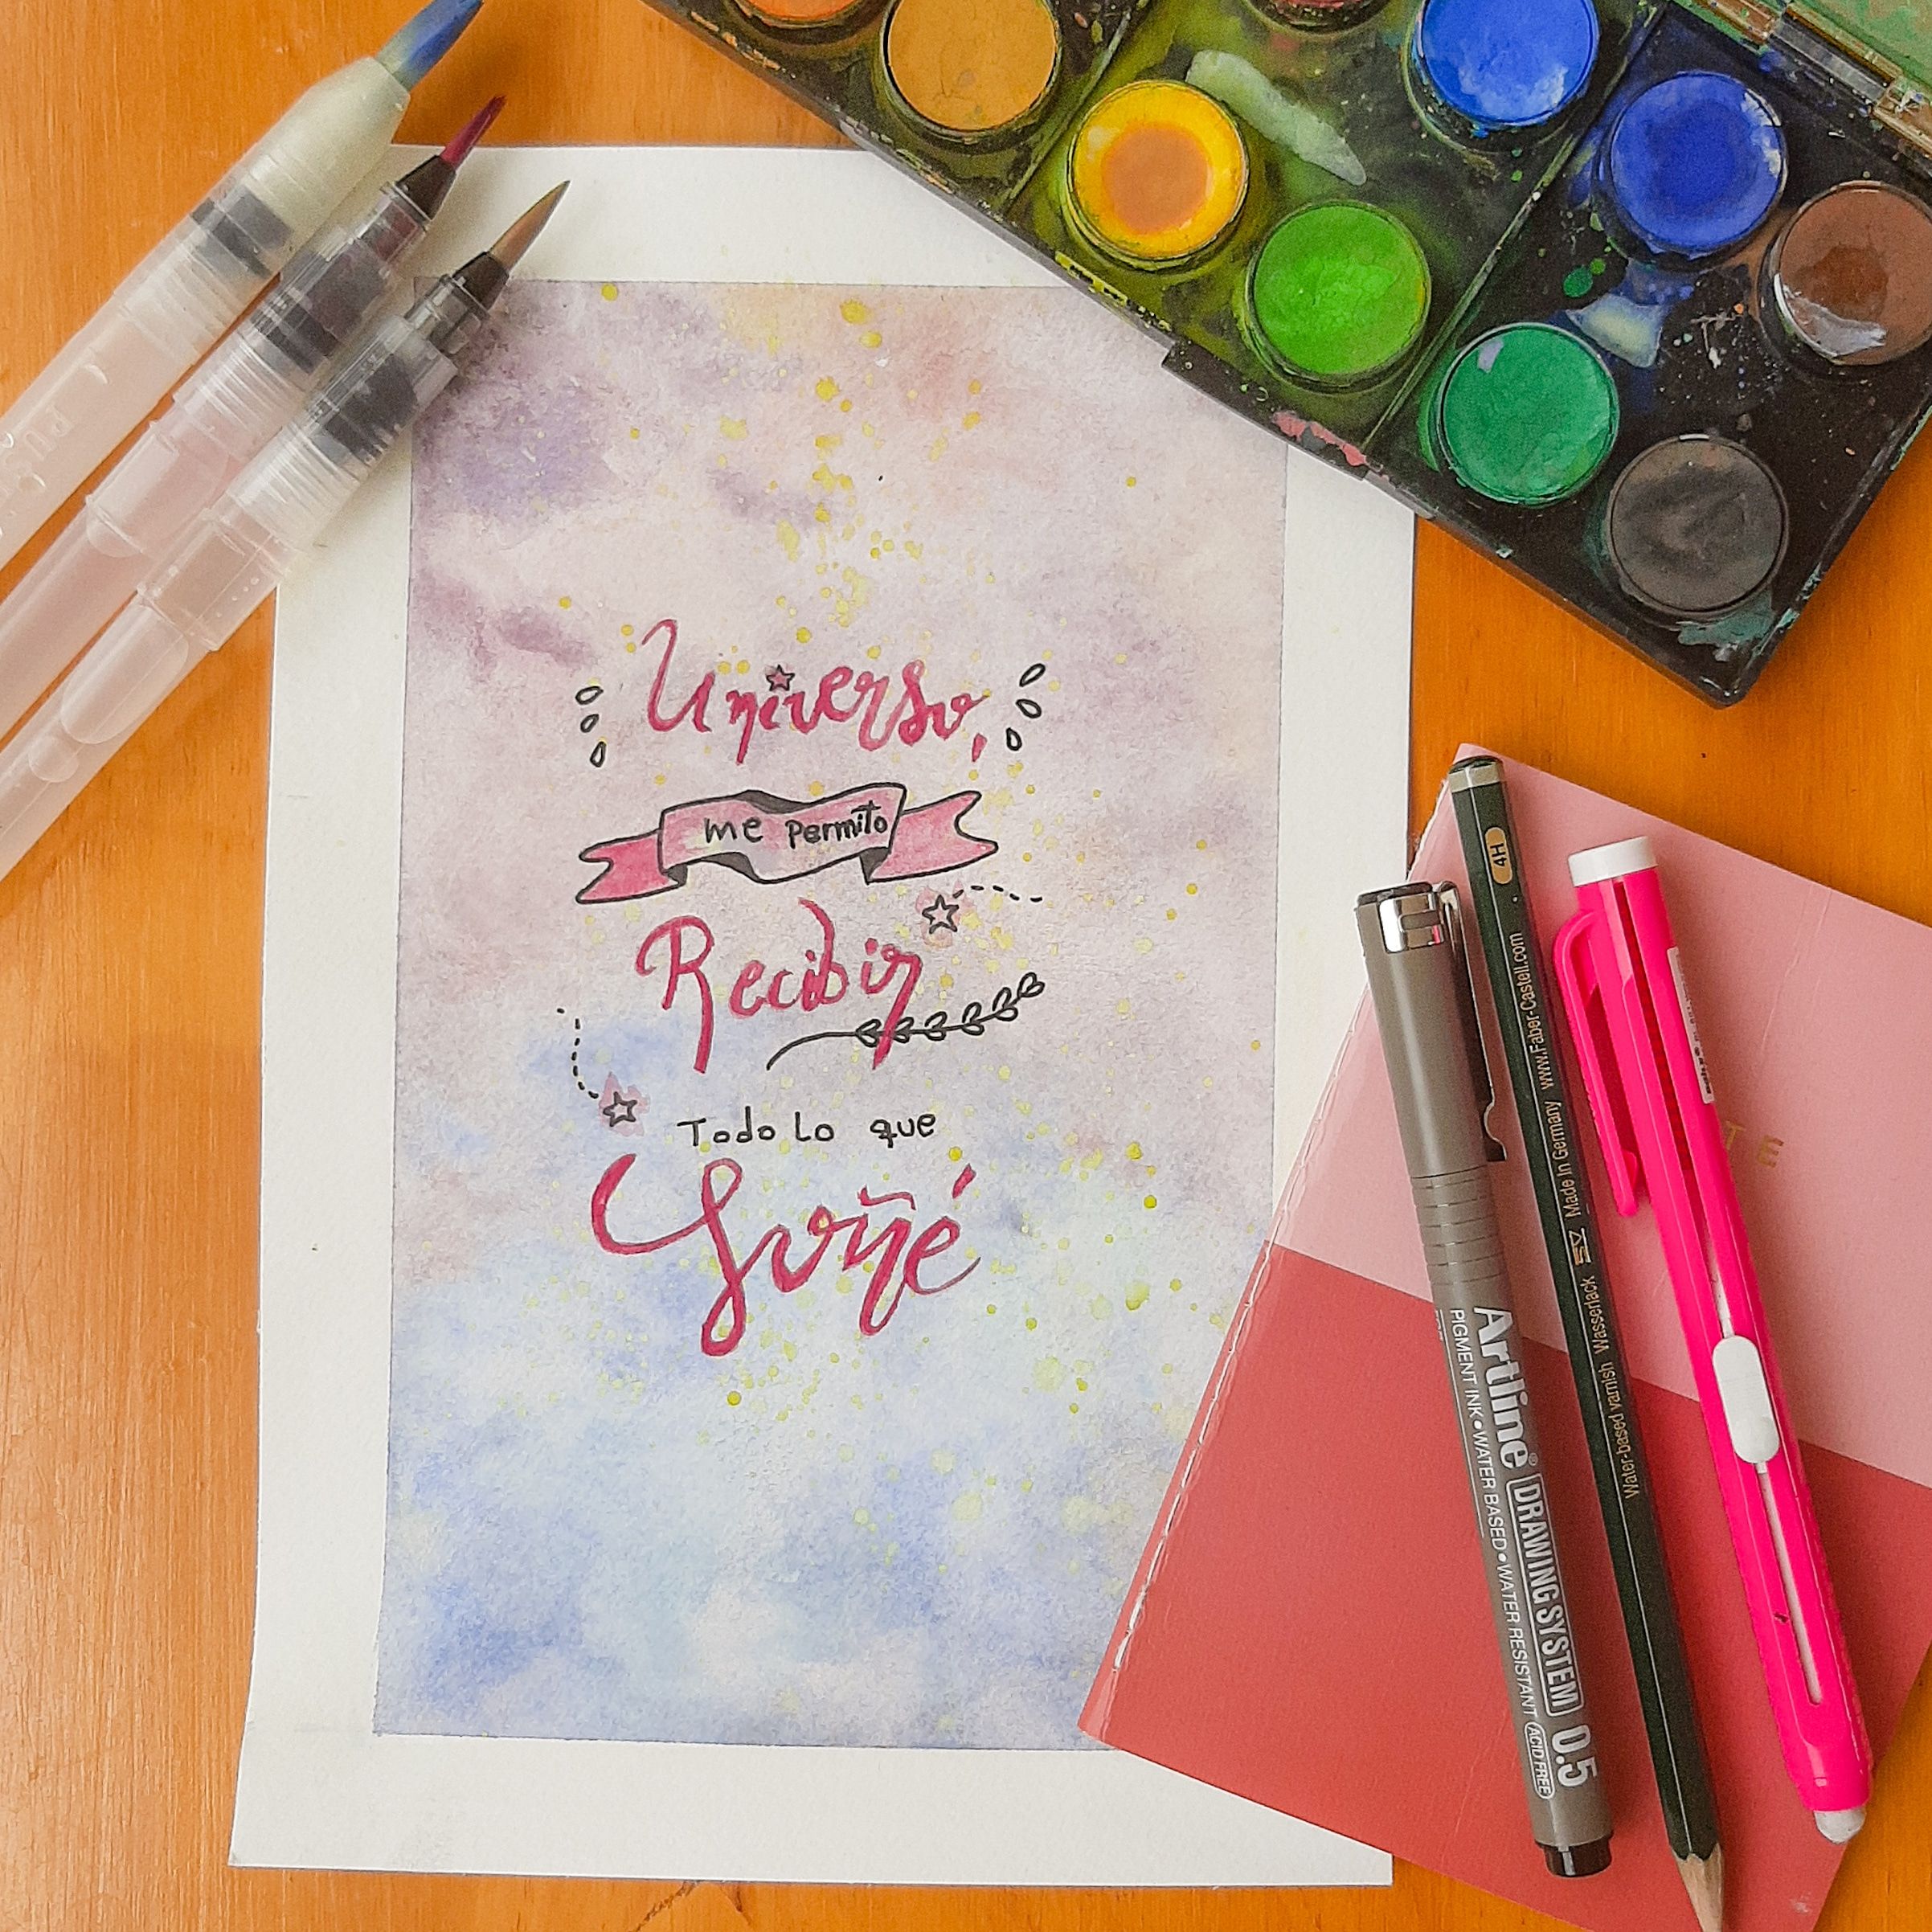 Universo,
me permito
Recibir
Todo lo que
Soñé
4H
www.Faber-Castell.com
Made in Germany
Water-based varnish Wasserlack
Artline® DRAWING SYSTEM 0.5
PIGMENT INK•WATER BASED•WATER RESISTANT ACID FREE
TE